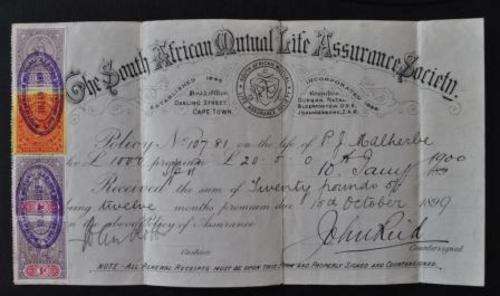 The South African Mutual Life Assurance Society.
ESTABLISHED 1845
INCORPORATED
HEAD OFFICE
DARLING STREET
CAPE TOWN.
DURBAN, NATAL
BLOEMFONTEIN O.F.S.
JOHANNESBURG, Z.A.R.
Policy No 10781 on the life of P J Malherbe
for £ 1000 premium £ 20-5-0
10 Jany 1900
Received the sum of Twenty pounds 5/
being twelve months premium due 10th October 1899
on the above Policy of Assurance
John Reid
Cashier. Countersigned
NOTE:-ALL RENEWAL RECEIPTS MUST BE UPON THIS FORM AND PROPERLY SIGNED AND COUNTERSIGNED.